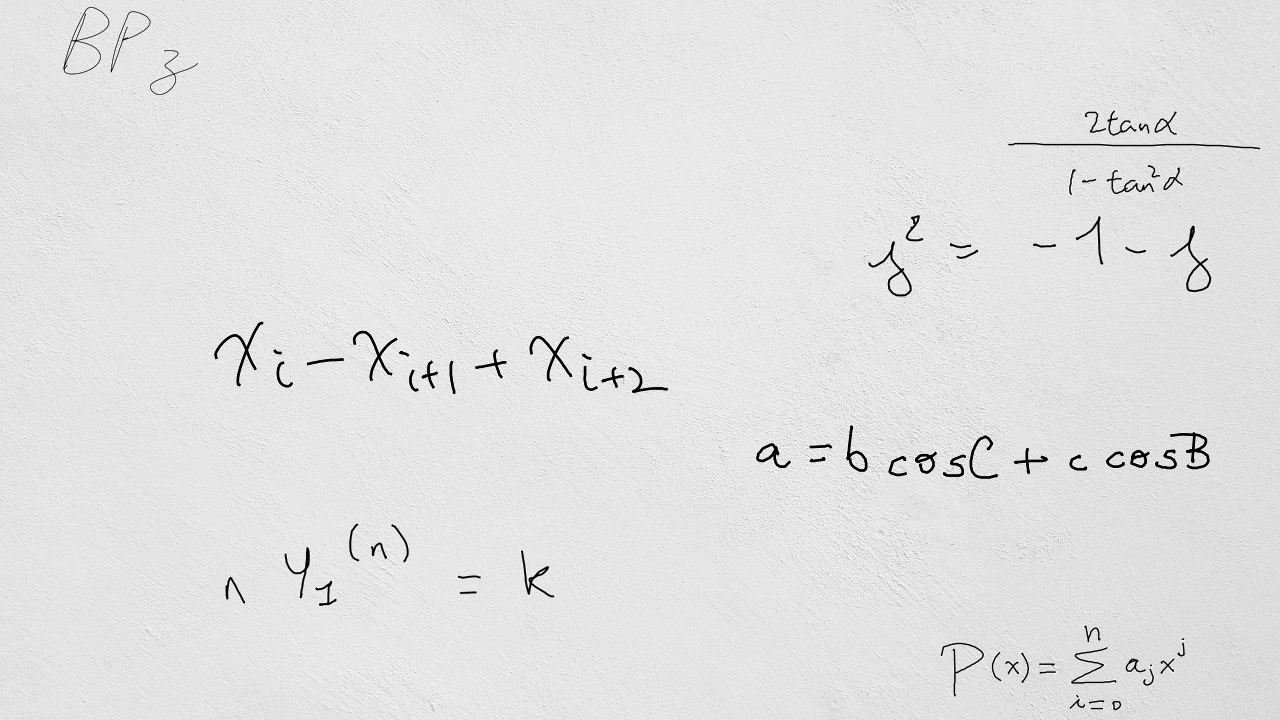 BP_z
\frac{2\tan\alpha}{1-\tan^2\alpha}
y^2 = -1 - y
x_i - x_{i+1} + x_{i+2}
a = b \cos C + c \cos B
n Y_1^{(n)} = k
P(x) = \sum_{i=0}^{n} a_j x^j